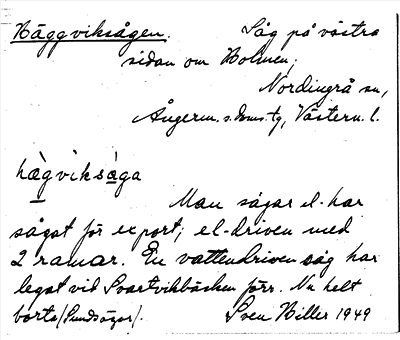 Häggviksågen. Låg på västra
sidan om Holmen,
Nordingrå sn,
Ångerm. s. doms.tg, Västern. l.
hä̀gvìksá̱ga
Man sågar el. har
sågat för export; el-driven med
2 ramar. En vattendriven såg har
legat vid Svartvikbäcken förr. Nu helt
borta (Sundsågar).
Sven Hiller 1949